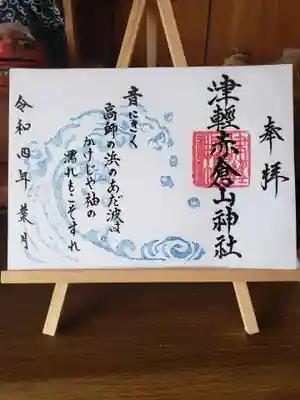 奉拝
津輕赤倉山神社
音にきく
高師の浜のあだ波は
かけじや袖の
濡れもこそすれ
令和四年 葉月